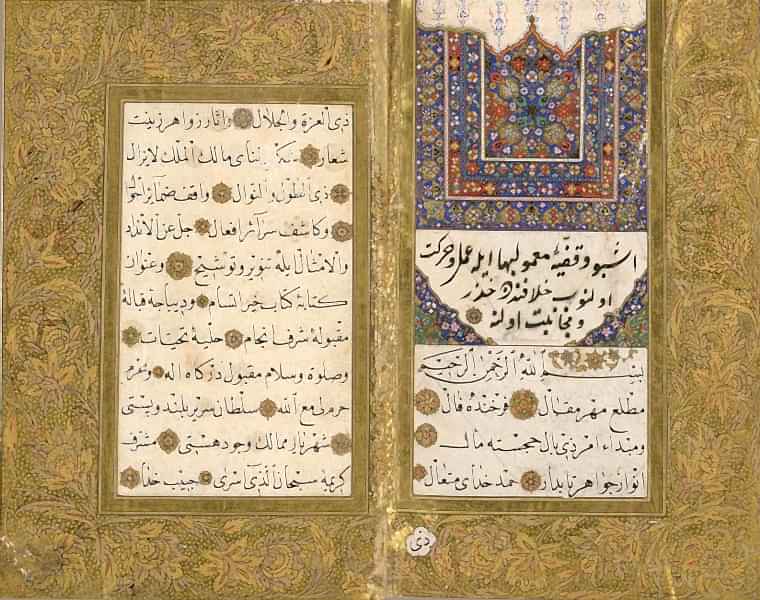 اشبو وقفیهٔ معمول بها ایله عمل و حرکت
اولنوب خلافندن حذر
و مجانبت اولنه
بسم الله الرحمن الرحیم
مطلع مهر مقبال فرخنده فال
ومبداء امر ذی بال خجسته مآل
انوار جواهر تابدار حمد خدای متعال
ذی
ذی العزة والجلال وآثار زواهر زینت
شعار ثنای مالك الملك لایزال
ذی الطول والنوال واقف ضمایر احوال
وكاشف سرآئر افعال جل عن الانداد
والامثال یله تنویر وتوشیح وعنوان
كتابهٔ كتاب خیر انتسام ودیباجهٔ قبالهٔ
مقبولهٔ شرف انجام حلیهٔ تحیات
وصلوة وسلام مقبول درگاه اله ومحرم
حرم لی مع الله سلطان سریر بلند وپستی
شهریار ممالك وجود هستی مشرف
كریمهٔ سبحان الذی اسری حبیب خدا